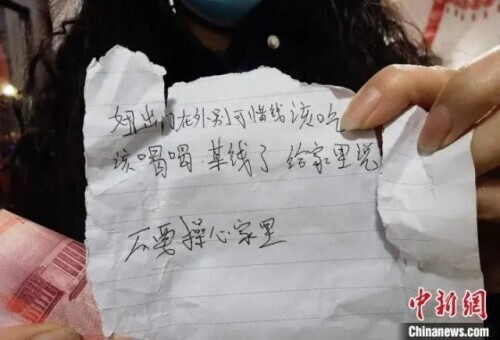 妞出门在外别可惜钱该吃
该喝喝.某钱了 给家里说
不要操心家里
中新网
Chinanews.com